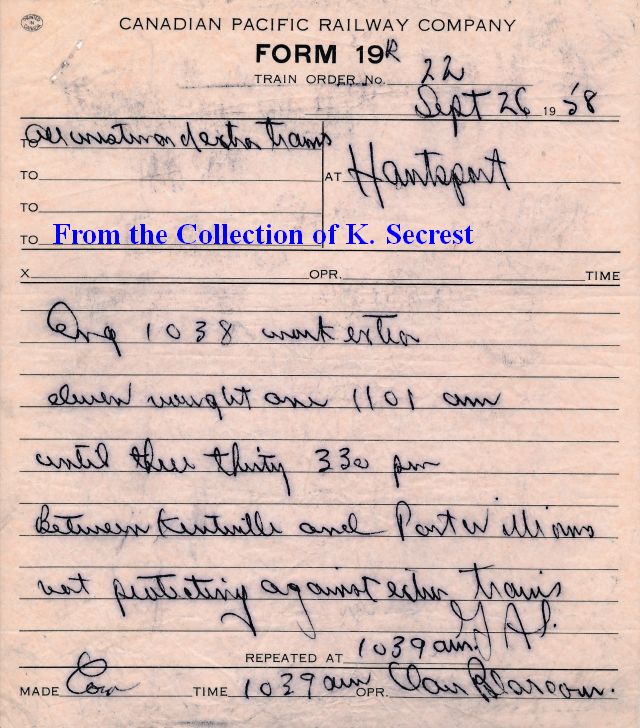 PRINTED IN CANADA
CANADIAN PACIFIC RAILWAY COMPANY
FORM 19R
TRAIN ORDER No. 22
Sept 26 1958
TO All westward extra trains
TO
AT Hantsport
TO
TO From the Collection of K. Secrest
X OPR. TIME
Eng 1038 work extra
eleven nought one 1101 am
until three thirty 330 pm
between Kentville and Port Williams
not protecting against extra trains
REPEATED AT 1039 am
MADE Com TIME 1039 am OPR.